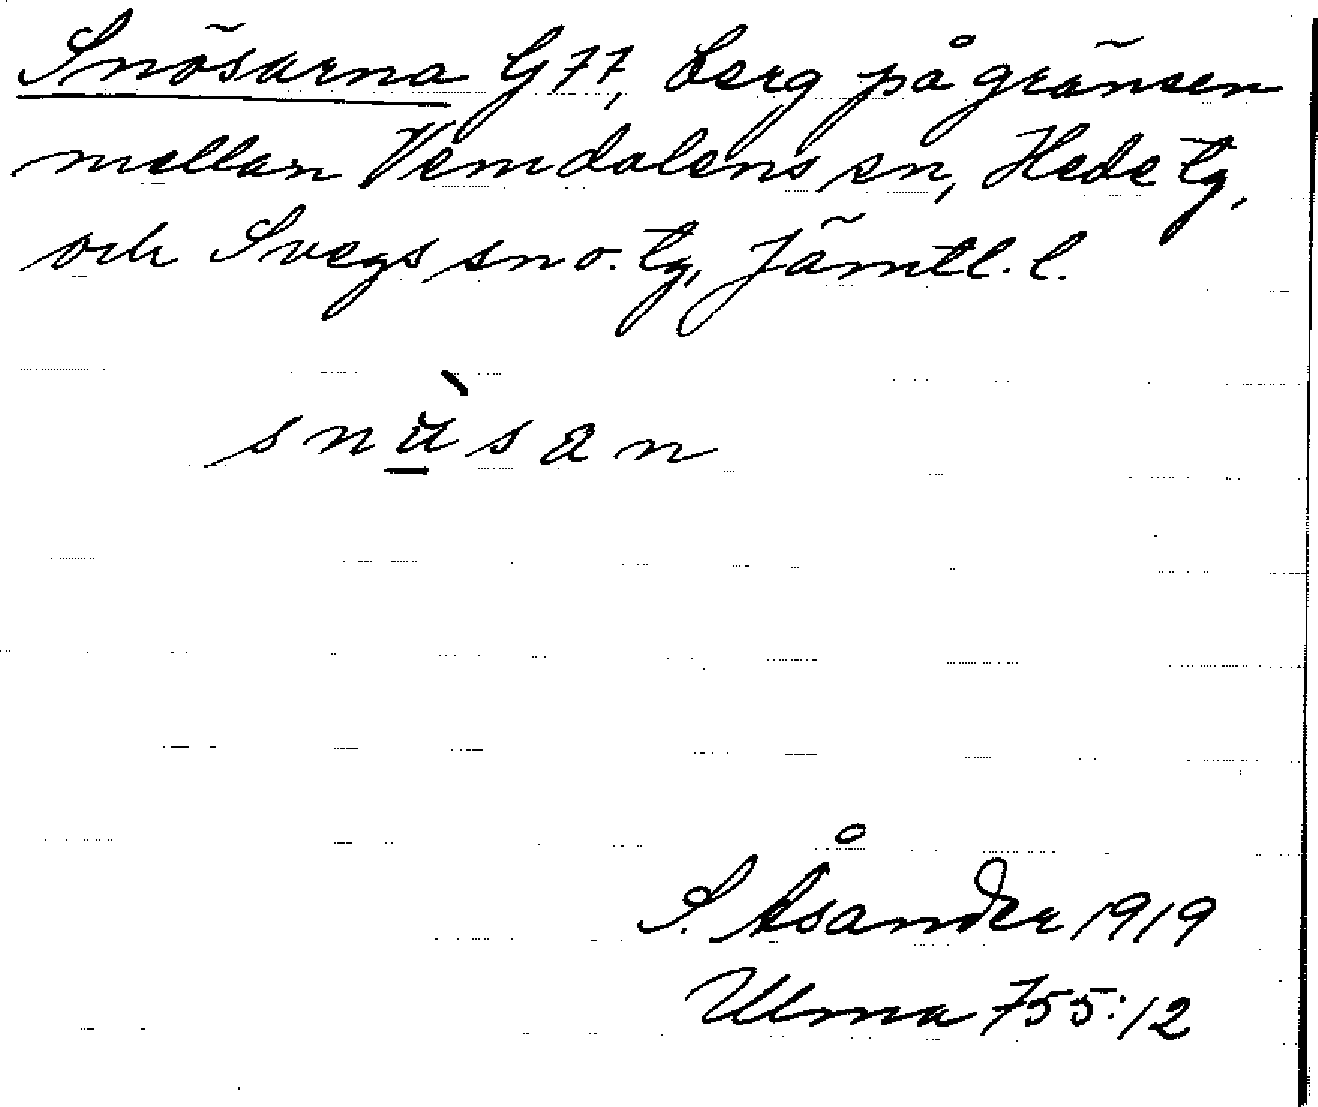 Snösarna G 77, berg på gränsen
mellan Vemdalens sn, Hede tg,
och Svegs sn o. tg, Jämtl. l.
snù̲san
S. Åsander 1919
Ulma 755:12